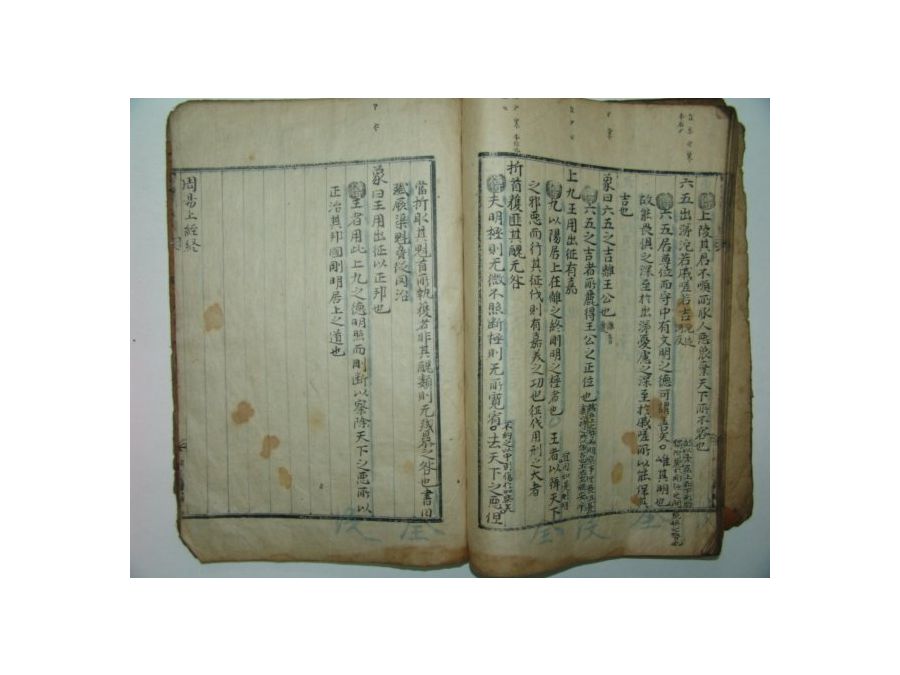 上陵其君不順所承人惡衆棄天下所不容也
六五出涕沱若戚嗟若吉
六五居尊位而守中有文明之德可謂善矣
故能畏懼之深至於出涕憂慮之深至於戚嗟所以能保其
吉也
象曰六五之吉離王公也
六五之吉者所麗得王公之正位也
上九王用出征有嘉
九以陽居上在離之終剛明之極者也
王者以辨天下
之邪惡而行其征伐則有嘉美之功也征伐用刑之大者
折首獲匪其醜无咎
夫明極則无微不照斷極則无所寬宥
去天下之惡但
當折取其魁首所執獲者非其醜類則无殘暴之咎也書曰
殲厥渠魁脅從罔治
象曰王用出征以正邦也
王者用此上九之德明照而剛斷以察除天下之惡所以
正治其邦國剛明居上之道也
周易上經終